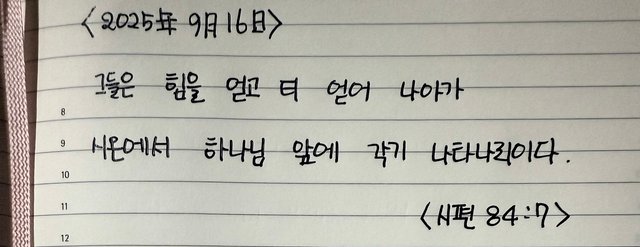 <2025年 9月 16日>
그들은 힘을 얻고 더 얻어 나아가
8
9 시온에서 하나님 앞에 각기 나타나리이다.
10
11 <시편 84:7>
12